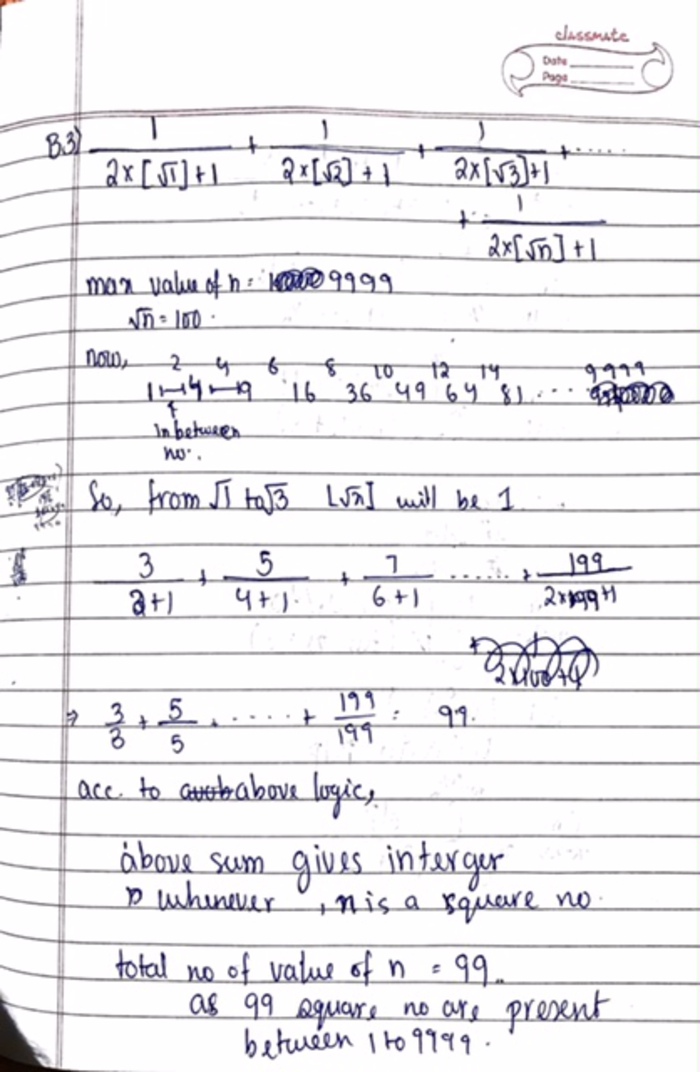 classmate
Date
Page
B.3) 1/(2×[√1]+1) + 1/(2×[√2]+1) + 1/(2×[√3]+1) + .....
+ 1/(2×[√n]+1)
max value of n = 9999
√n = 100.
now, 2 4 6 8 10 12 14
1 4 9 16 36 49 64 81 .... 9999
In between
no.
So, from √1 to √3 [√n] will be 1.
3/(2+1) + 5/(4+1) + 7/(6+1) ...... + 199/(2×99+1)
⇒ 3/3 + 5/5 + ..... + 199/199 = 99.
acc. to above logic,
above sum gives interger
whenever, n is a square no.
total no of value of n = 99.
as 99 square no are present
between 1 to 9999.